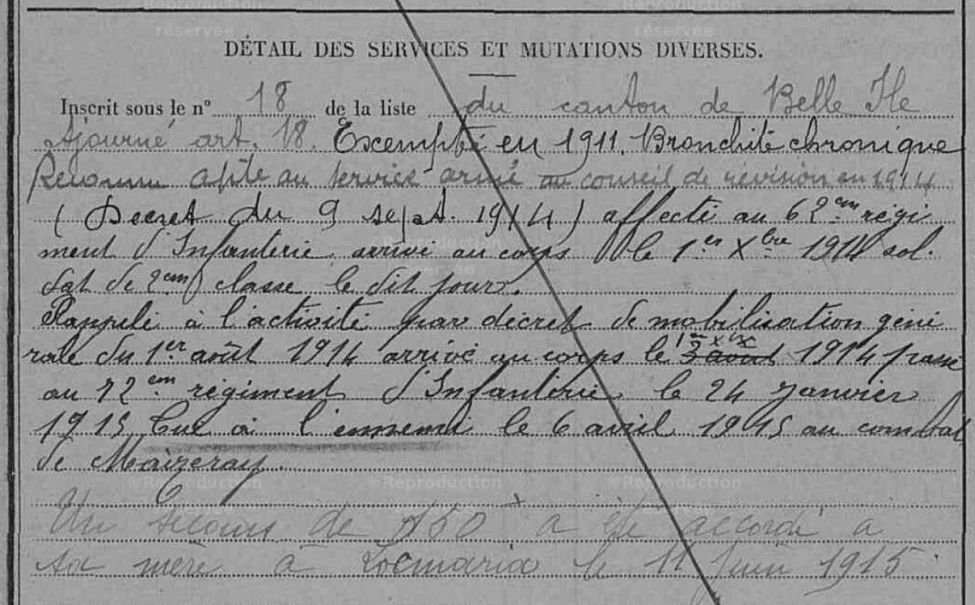 DÉTAIL DES SERVICES ET MUTATIONS DIVERSES.
Inscrit sous le n° 18 de la liste du canton de Belle Ile
Ajourné art. 18. Exempté en 1911. Bronchite chronique
Reconnu apte au service armé au conseil de revision en 1914
(Decret du 9 sept. 1914) affecté au 62em régi
ment d'Infanterie arrivé au corps le 1er Xbre 1914 sol.
dat de 2em classe le dit jour.
Rappelé à l'activité par décret de mobilisation géné
rale du 1er août 1914 arrivé au corps le 1er Xbre 3 août 1914 passé
au 72em régiment d'Infanterie le 24 Janvier
1915 Tué à l'ennemi le 6 avril 1915 au combat
de Maizeray.
Un secours de 150 a été accordé a
sa mère à Locmaria le 11 Juin 1915
©Reproduction
réservée
©Reproduction
réservée
©Reproduction
©Reproduction
©Reproduction